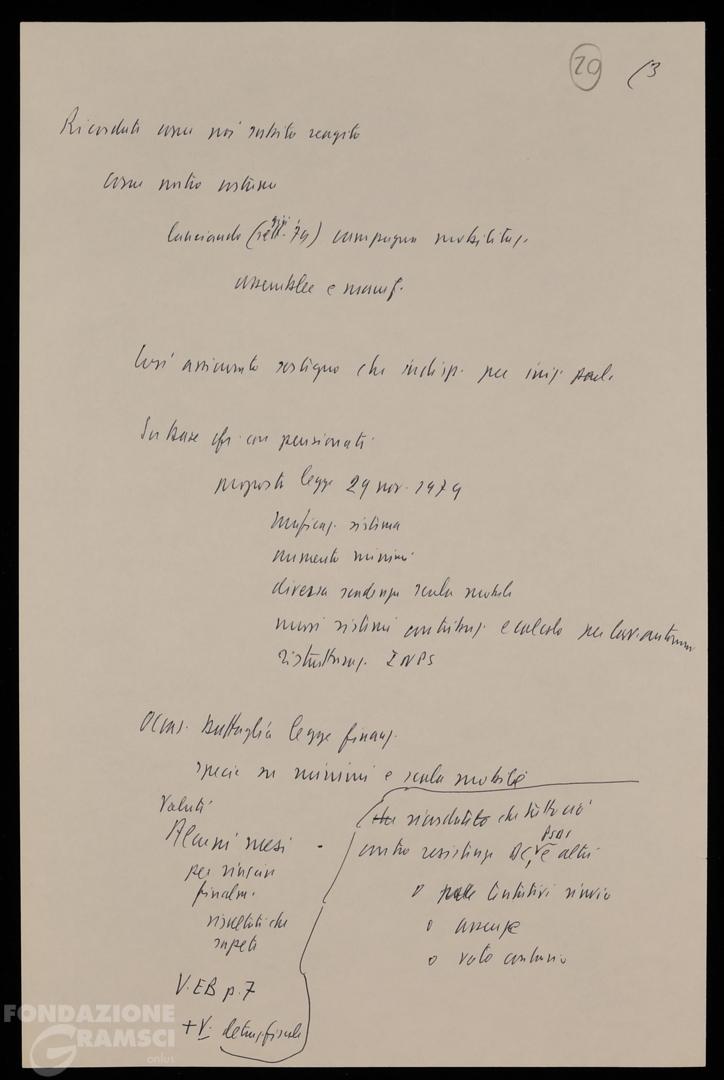 20 (3
Ricordati come noi subito reagito
come nostro costume
lanciando (sett. giu '79) campagna mobilitaz.
assemblee e manif.
Così assicurato sostegno che indisp. per iniz. parl.
Su base cfr. con pensionati
proposta legge 29 nov. 1979
unificaz. sistema
aumento minimi
diversa cadenza scala mobile
nuovi sistemi contribuz. e calcolo per lav. autonomi
ristrutturaz. INPS
Occas. battaglia legge finanz.
specie su minimi e scala mobile
Voluti
Alcuni mesi
per
finalm.
risultati che
sapete
V. EB p. 7
+ V. detraz. fiscali
che ricordato che tutto ciò
contro resistenze DC, PSDI e altri
o tentativi rinvio
o assenze
o voto contrario
FONDAZIONE
GRAMSCI
onlus